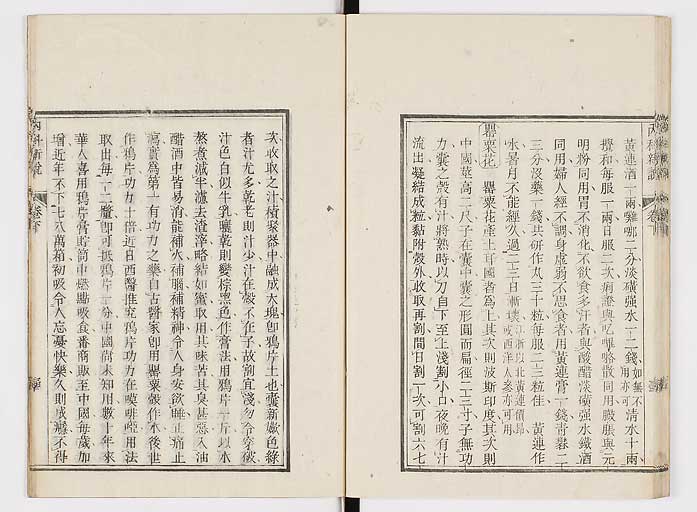 黃連酒一兩雞哪二分淡磺强水一二錢如無不用亦可清水十兩
攪和每服一兩日服二次病證與吃嗶格散同用臟脹與元
明粉同用胃不消化不欲食多汗者與酸醋淡磺强水鐵酒
同用婦人經不調身虛弱不思食者用黃連膏一錢青礬二
三分沒藥一錢共研作丸三十粒每服二三粒佳　黃連作
水暑月不能經久過二三日漸壞
罌粟花　罌粟花產土耳國者爲上其次則波斯印度其次則
中國莖高二尺子在囊中囊之形圓而扁徑二三寸子無功
力囊之殼有汁將熟時以刀自下至上淺割小口夜晚有汁
流出凝結成粒黏附殼外收取再割間日割一次可割六七
次收取之汁積聚器中融成大塊卽鴉片土也囊新嫩色綠
者汁尤多乾老則汁少汁在殼不在子故割宜淺勿令穿破
汁色白似牛乳曬乾則變棕黑色作膏法用鴉片一斤以水
熬煮減半濾去渣滓略結如蜜取用其味苦其臭甚惡入油
醋酒中皆易消能補火補腦補精神令人身安欲睡止痛止
瀉實爲第一有功力之藥自古醫家卽用罌粟殼作水後世
作鴉片功力十倍近日西醫推究鴉片功力在嗼啡啞用法
取出每一二釐卽可抵鴉片一分中國尚未知用數十年來
華人喜用鴉片膏貯筒中燃點吸食番商販至中國每歲加
增近年不下七八萬箱初吸令人忘憂快樂久則成癮不得
內科新說
卷下